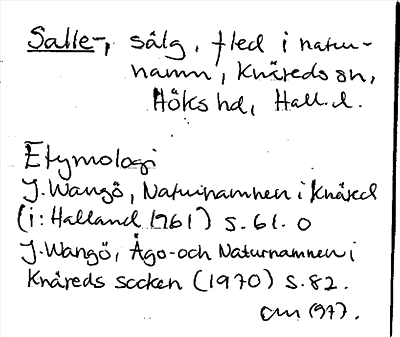 Salle-, sälg, fled i natur-
namn, Knäreds sn,
Höks hd, Hall. l.
Etymologi
J. Wangö, Naturnamnen i Knäred
(i: Halland 1961) s. 61. o
J. Wangö, Ägo- och Naturnamnen i
Knäreds socken (1970) s. 82.
1977.